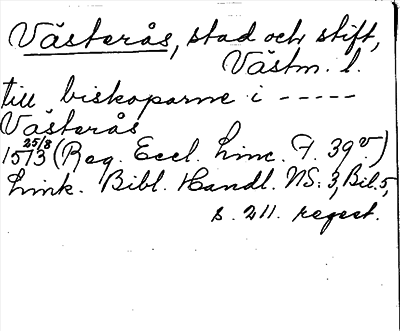 Västerås, stad och stift,
Västm. l.
till biskoparne i -----
Västerås
25/8
1513 (Reg. Eccl. Linc. F. 39 v)
Link. Bibl. Handl. NS: 3, Bil. 5,
s. 211. regest.